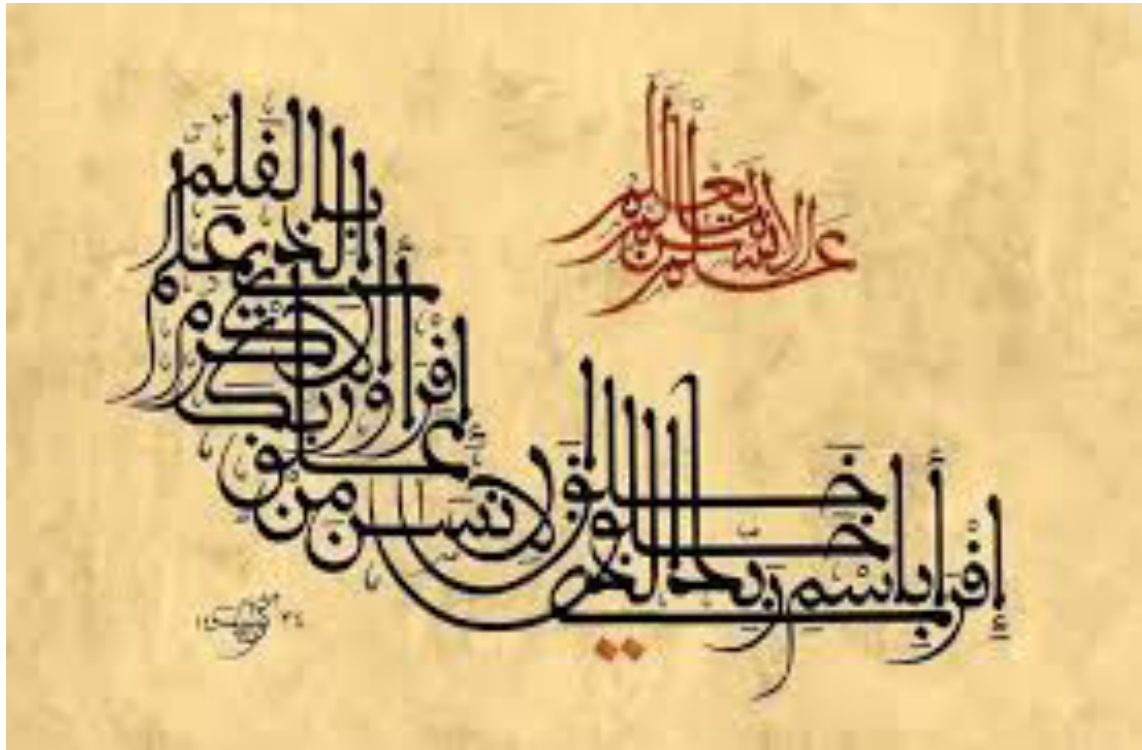 اقرأ باسم ربك الذي خلق
خلق الإنسن من علق
اقرأ وربك الأكرم
الذي علم بالقلم
علم الإنسن ما لم يعلم